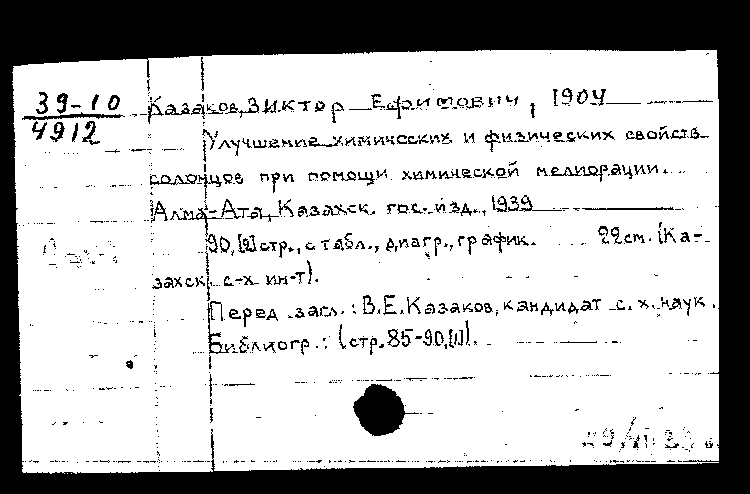 39-10
4912
Казаков, Виктор Ефимович, 1904
Улучшение химических и физических свойств
солонцов при помощи химической мелиорации.
Алма-Ата, Казахск. гос. изд., 1939
90, [2] стр., с табл., диагр., график. 22 см. (Ка-
захск. с-х ин-т).
Перед загл.: В.Е. Казаков, кандидат с. х. наук.
Библиогр.: (стр. 85-90, [1]).